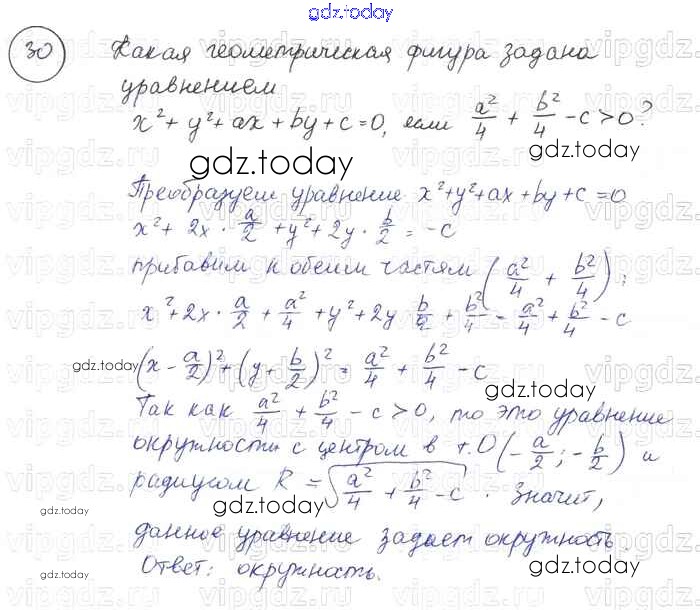 gdz.today
30 Какая геометрическая фигура задана
уравнением
x² + y² + ax + by + c = 0, если a²/4 + b²/4 - c > 0?
gdz.today
Преобразуем уравнение x² + y² + ax + by + c = 0
x² + 2x · a/2 + y² + 2y · b/2 = -c
прибавим к обеим частям (a²/4 + b²/4);
x² + 2x · a/2 + a²/4 + y² + 2y · b/2 + b²/4 - a²/4 + b²/4 - c
gdz.today (x - a/2)² + (y + b/2)² = a²/4 + b²/4 - c gdz.today
Так как a²/4 + b²/4 - c > 0, то это уравнение
окружности с центром в т. O(-a/2; -b/2) и
радиусом R = √(a²/4 + b²/4 - c). Значит,
gdz.today gdz.today
данное уравнение задает окружность.
gdz.today Ответ: окружность. gdz.today